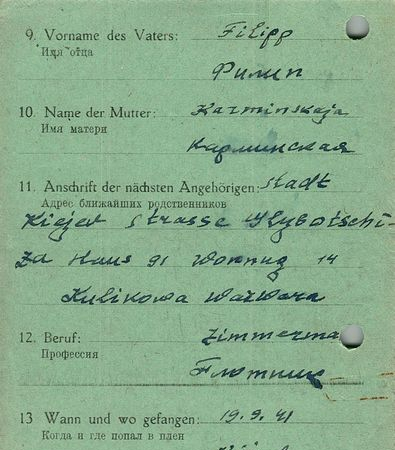 9. Vorname des Vaters: Filipp
Имя отца
Филип
10. Name der Mutter: Karminskaja
Имя матери
Карминская
11. Anschrift der nächsten Angehörigen: Stadt
Адрес ближайших родственников
Kiejew Strasse
Haus 91 Wonnug 14
Kulikowa Warwara
12. Beruf: Zimmerma
Профессия
Плотник
13 Wann und wo gefangen: 19.9.41
Когда и где попал в плен